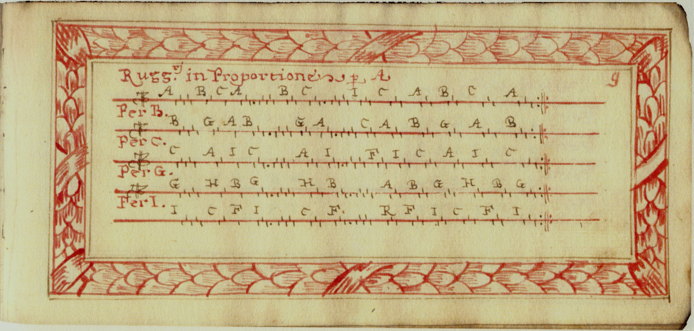 Rugg.º in Proportione p. A 9
A B C A B C I C A B C A
Per B.
B G A B G A C A B G A B
Per C.
C A I C A I F I C A I C
Per G.
G H B G H B A B G H B G
Per I.
I C F I C F. K F I C F I